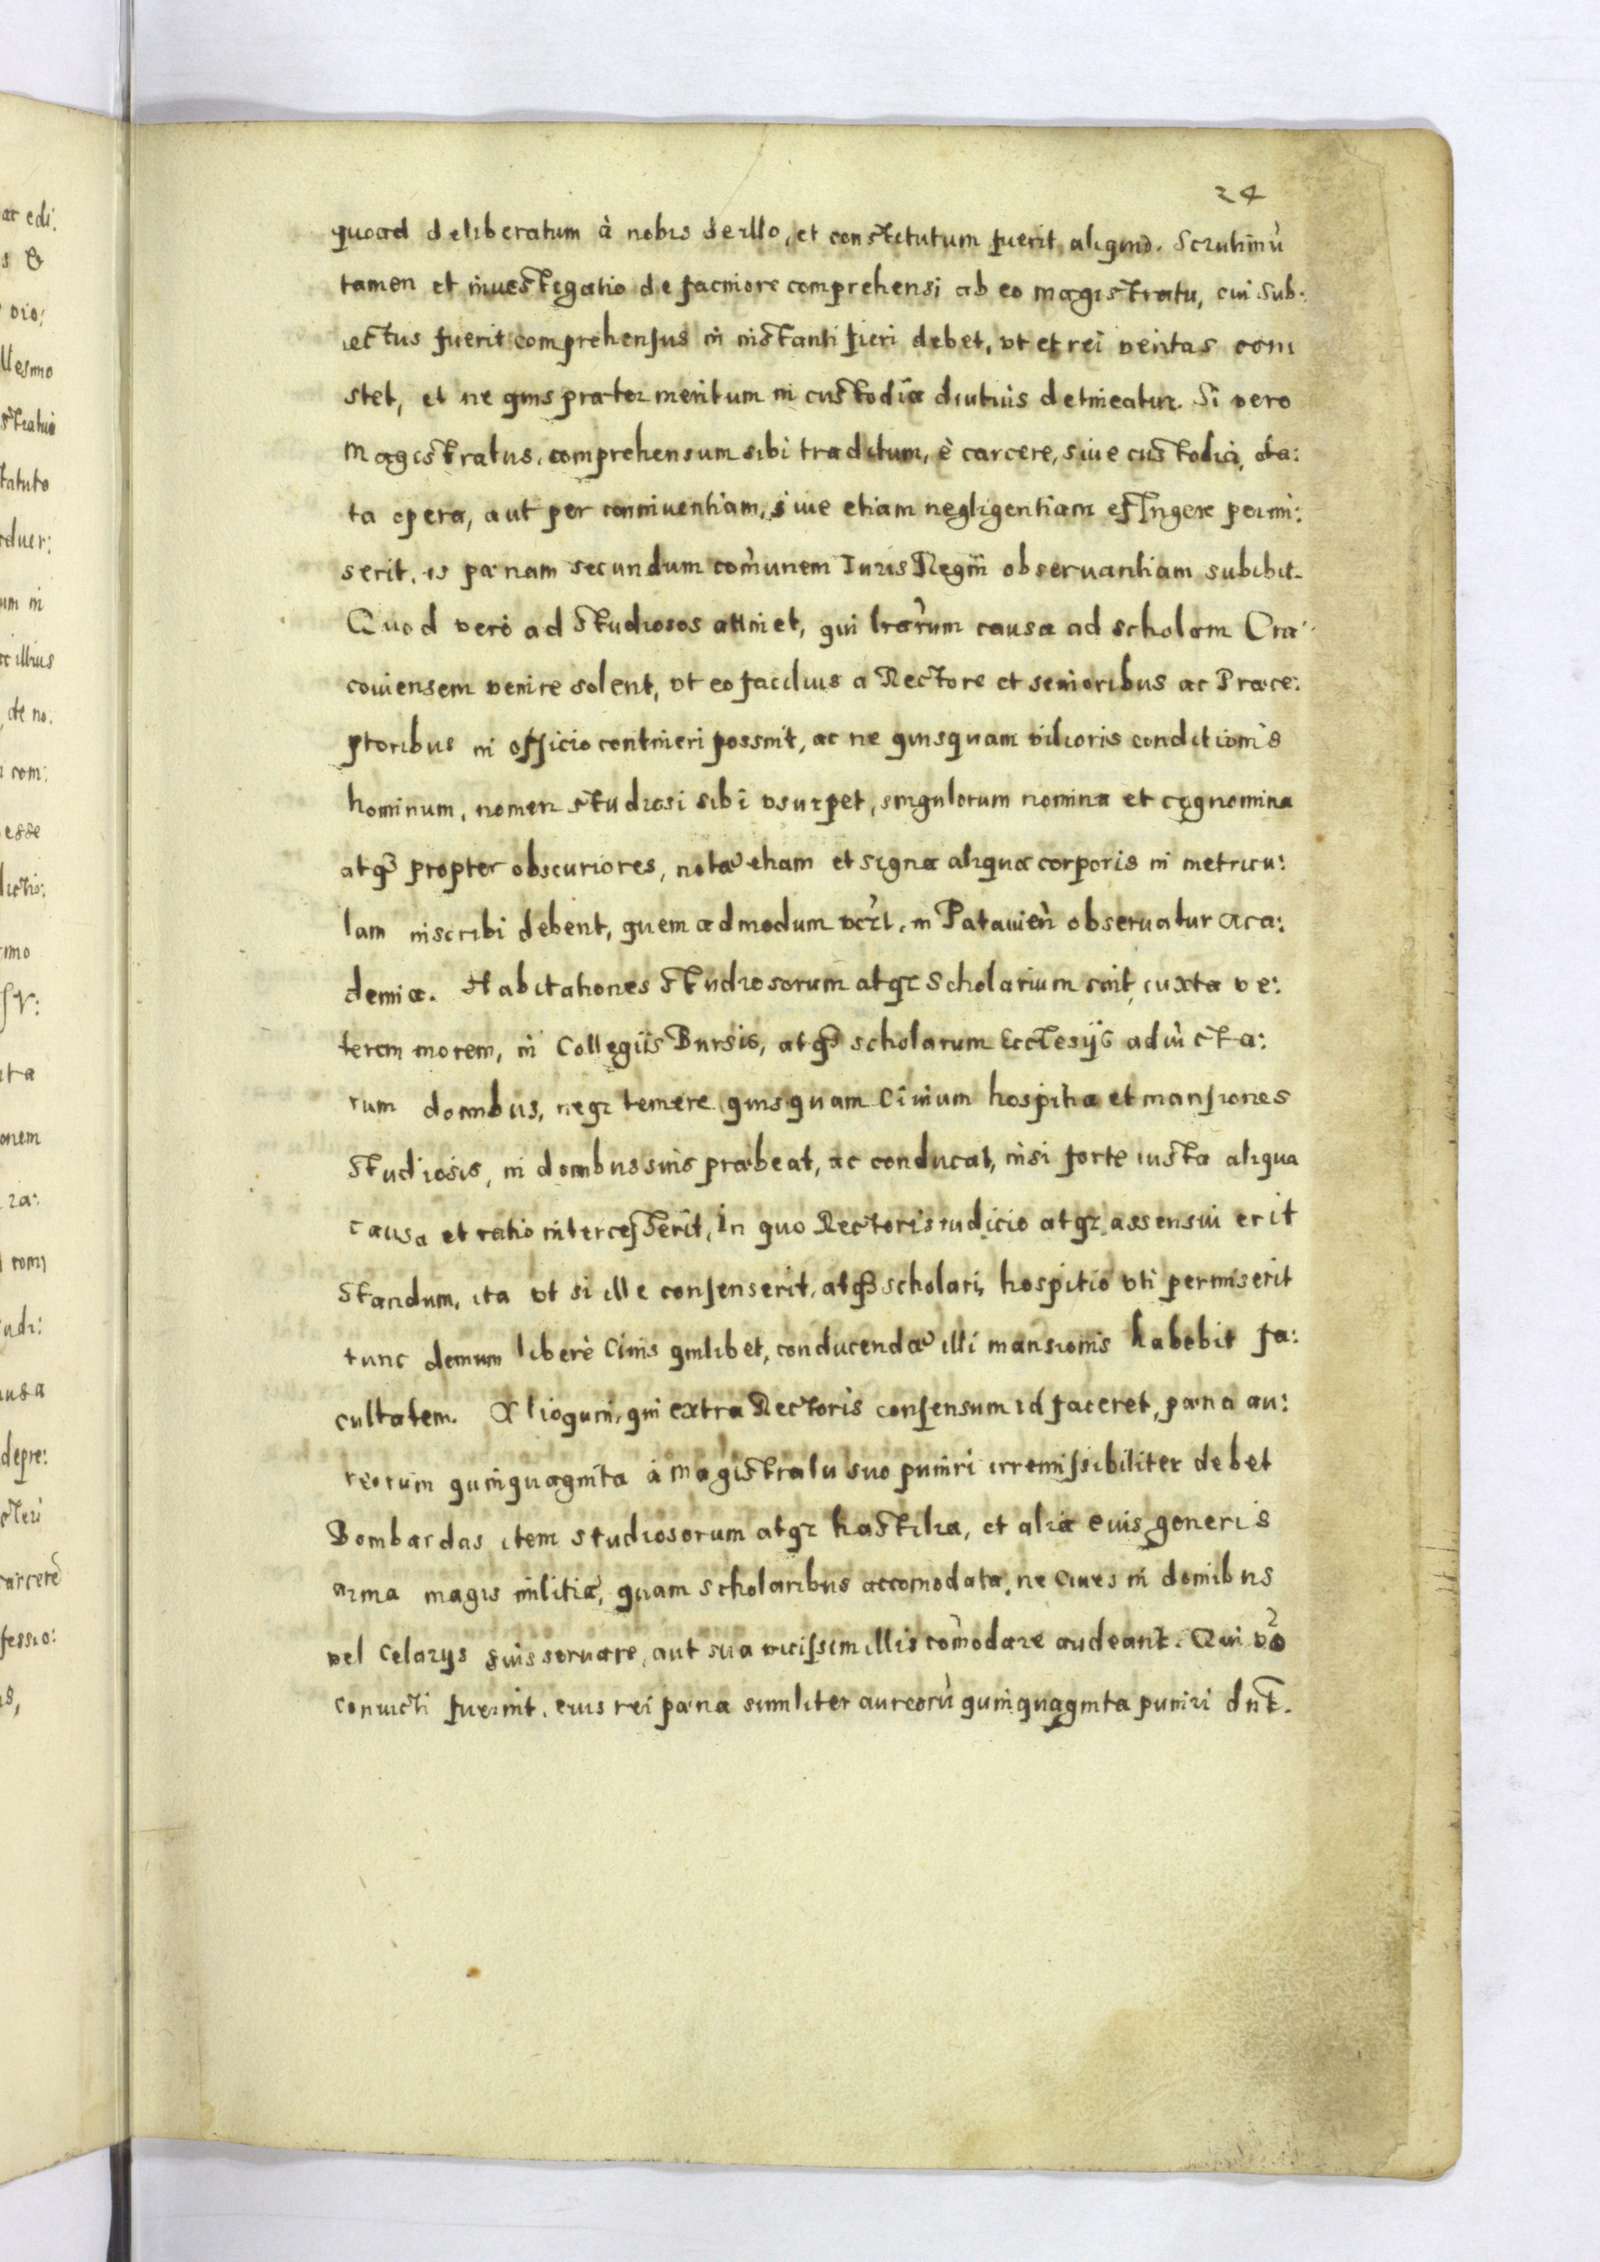 24
quoad deliberatum à nobis de illo, et constitutum fuerit aliquid. Scrutiniũ
tamen et inuestigatio de facinore comprehensi ab eo magistratu, cui sub:
iectus fuerit comprehensus in instanti fieri debet, vt et rei veritas con
stet, et ne quis præter meritum in custodia diutius detineatur. Si vero
Magistratus, comprehensum sibi traditum, è carcere, siue custodia, da:
ta opera, aut per conniuentiam, siue etiam negligentiam effugere permi:
serit, is pænam secundum com̃unem Iuris Regnĩ obseruantiam subibit.
Quod verò ad studiosos attinet, qui lrãrum causa ad scholam Cra:
couiensem venire solent, vt eo facilius a Rectore et senioribus ac Præce:
ptoribus in officio contineri possint, ac ne quisquam vilioris conditionis
hominum, nomen studiosi sibi vsurpet, singulorum nomina et cognomina
atq3 propter obscuriores, notæ etiam et signa aliqua corporis in metricu:
lam inscribi debent, quem admodum in Patauieñ obseruatur Aca:
demia. Habitationes studiosorum atq3 Scholarium sint, iuxta ve:
terem morem, in Collegiis Bursis, atq3 scholarum Ecclesijs adiũcta:
rum domibus, neq3 temere quisquam Ciuium hospitia et mansiones
studiosis, in domibus suis præbeat, ac conducat, nisi forte iusta aliqua
causa et ratio intercesserit, in quo Rectoris iudicio atq3 assensui erit
standum, ita vt si ille consenserit, atq3 scholari, hospitio vti permiserit
tunc demum liberè Ciuis quilibet, conducendæ illi mansionis habebit fa:
cultatem. Alioquin, qui extra Rectoris consensum id faceret, pæna au:
reorum quinquaginta à Magistratu suo puniri irremissibiliter debet
Bombardas item studiosorum atq3 hastilia, et alia eius generis
arma magis militiæ, quam scholaribus accomodata, ne Ciues in domibus
vel Celarijs suis seruare, aut sua vicissim illis com̃odare audeant. Qui vo
conuicti fuerint, eius rei pæna similiter aureorũ quinquaginta puniri dnt.